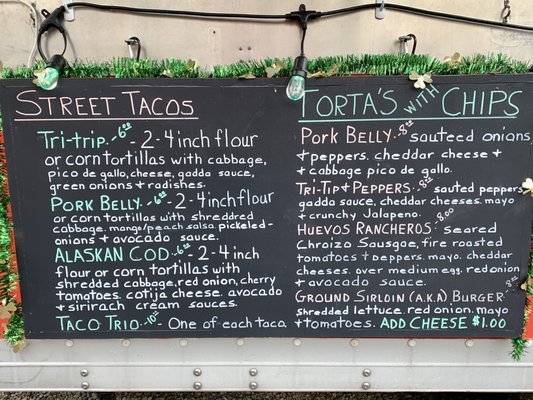 STREET TACOS
TRI-TRIP.-6.00- 2-4inch flour
or corn tortillas with cabbage,
pico de gallo, cheese, gadda sauce,
green onions & radishes.
PORK BELLY.-6.00-2-4inch flour
or corn tortillas with shreddred
cabbage. mango/peach salsa. pickeled-
onions & avocado sauce.
ALASKAN COD.-6.00-2-4inch
flour or corn tortillas with
shredded cabbage, red onion, cherry
tomatoes. cotija cheese. avocado
& sirirach cream sauces.
TACO TRIO.-10.00- One of each taca
TORTA'S WITH CHIPS
PORK BELLY. 8.00 sauteed onions
& peppers. cheddar cheese &
& cabbage pico de gallo.
TRI-TIP & PEPPERS. 8.00 sauted peppers
gadda sauce, cheddar cheeses. mayo
& crunchy Jalapeno.
HUEVOS RANCHEROS. 8.00 seared
Chroizo Sausgae, fire roasted
tomatoes & peppers. mayo. cheddar
cheeses. over medium egg. red onion
& avocado sauce.
GROUND SIRLOIN (A.K.A) BURGER 8.00
Shredded lettuce. red onion. mayo
& tomatoes. ADD CHEESE $1.00